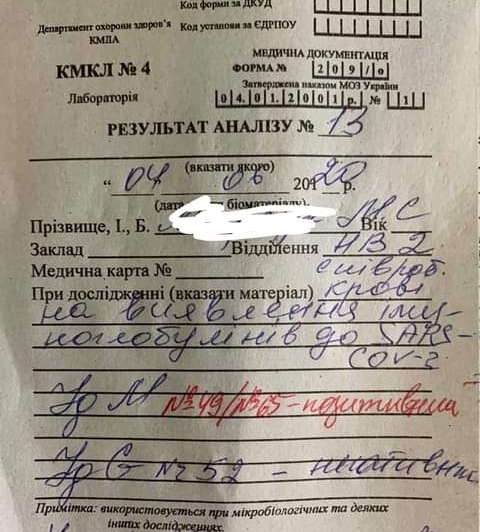 Код форми за ДКУД
Департамент охорони здоров'я
КМПА
Код установи за ЄДРПОУ
МЕДИЧНА ДОКУМЕНТАЦІЯ
КМКЛ № 4
ФОРМА № 209/о
Затверджена наказом МОЗ України
Лабораторія
04.01.2001р. № 1
РЕЗУЛЬТАТ АНАЛІЗУ № 13
(вказати якого)
“ 04 06 20120 р.
(дата біоматеріалу)
Прізвище, І., Б. МС Вік
Заклад Відділення НВ 2
співроб.
Медична карта №
При дослідженні (вказати матеріал) крові
на виявлення іму-
ноглобулінів до SARS-
COV-2
Ig M №49/№65 - позитивна
Ig G № 52 - негативн
Примітка: використовується при мікробіологічних та деяких
інших дослідженнях.